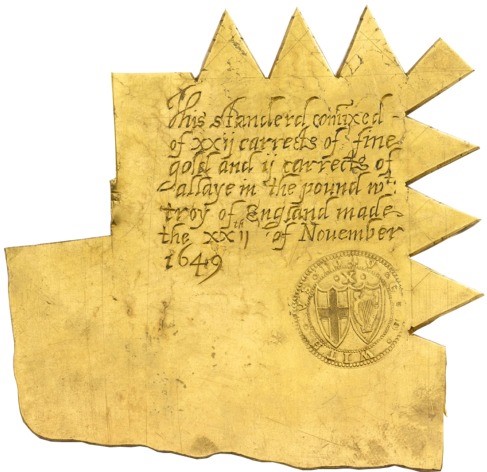 This standerd comixed
of xxij carrects of fine
gold and ij carrects of
allaye in the pound wt
troy of England made
the xxiith of November
1649